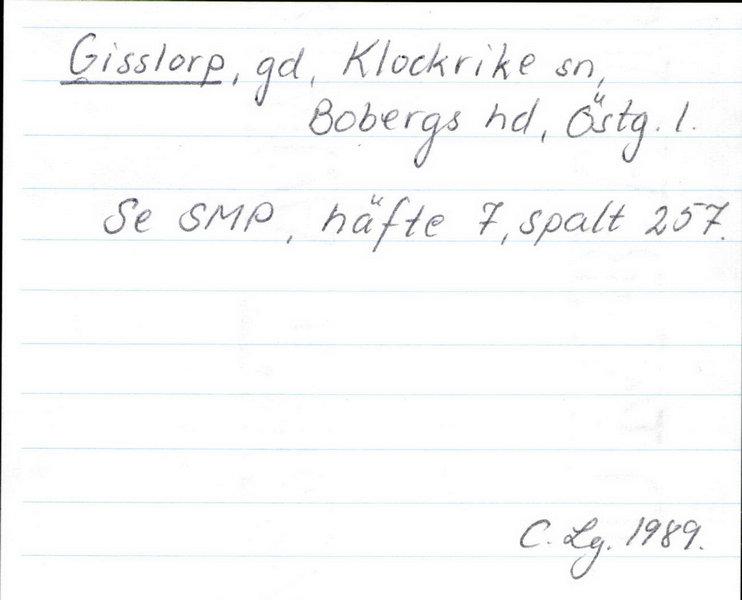 Gisslorp, gd, Klockrike sn,
Bobergs hd, Östg. l.
Se SMP, häfte 7, spalt 257.
C. Lg. 1989.